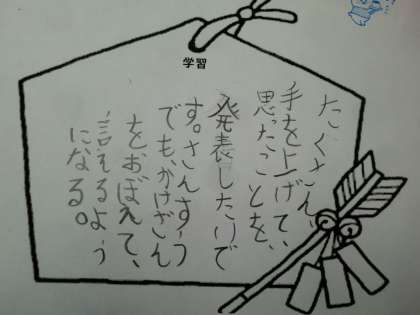 学習
たくさん、
手を上げて、
思ったことを、
発表したいで
す。さんすう
でも、かけざん
をおぼえて、
言えるよう
になる。